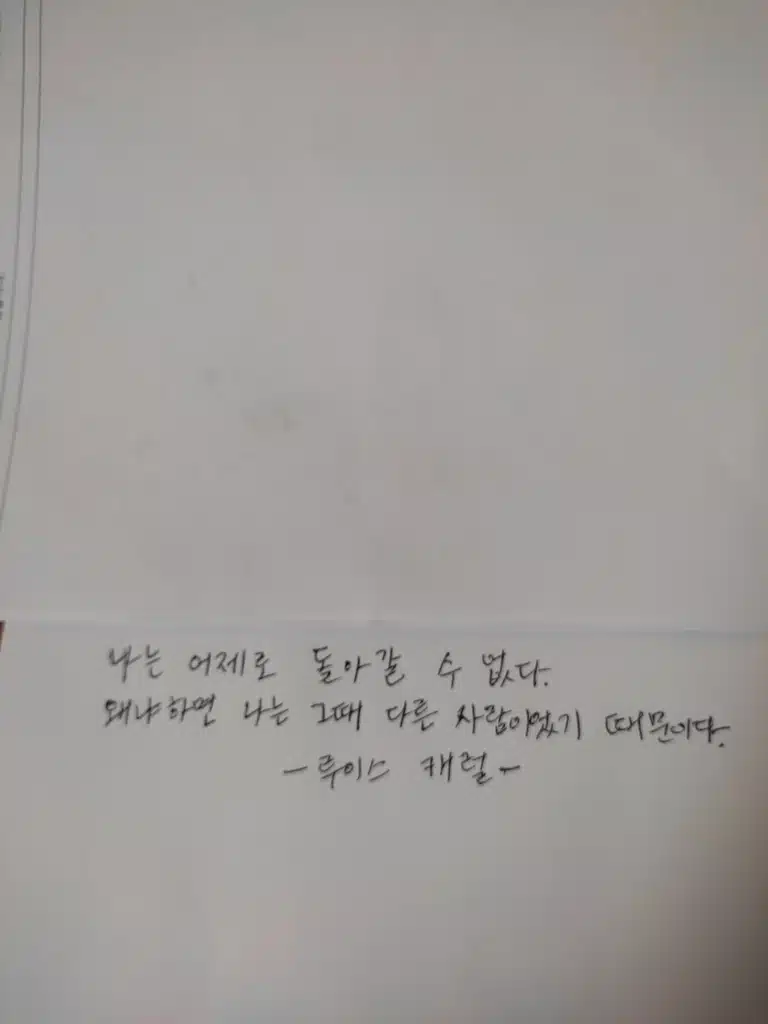 나는 어제로 돌아갈 수 없다.
왜냐하면 나는 그때 다른 사람이었기 때문이다.
- 루이스 캐럴 -